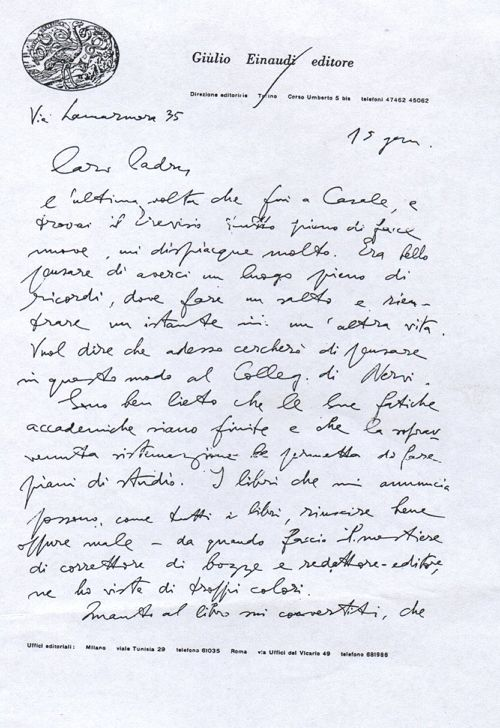 Giulio Einaudi editore
Direzione editoriale Torino Corso Umberto 5 bis telefoni 47462 45062
Via Lamarmora 35
15 genn.
Caro Padre,
l'ultima volta che fui a Casale, e
trovai il Trevisio tutto pieno di facce
nuove, mi dispiacque molto. Era bello
pensare di averci un luogo pieno di
ricordi, dove fare un salto e rien-
trare un istante in un'altra vita.
Vuol dire che adesso cercherò di pensare
in questo modo al Colleg. di Nervi.
Sono ben lieto che le Sue fatiche
accademiche siano finite e che la soprav-
venuta sistemazione Le permetta di fare
piani di studio. I libri che mi annuncia
possono, come tutti i libri, riuscire bene
oppure male – da quando faccio il mestiere
di correttore di bozze e redattore-editore,
ne ho vista di troppi colori.
al libro sui convertiti, che
Uffici editoriali: Milano viale Tunisia 29 telefono 61035 Roma via Uffici del Vicario 49 telefono 681986